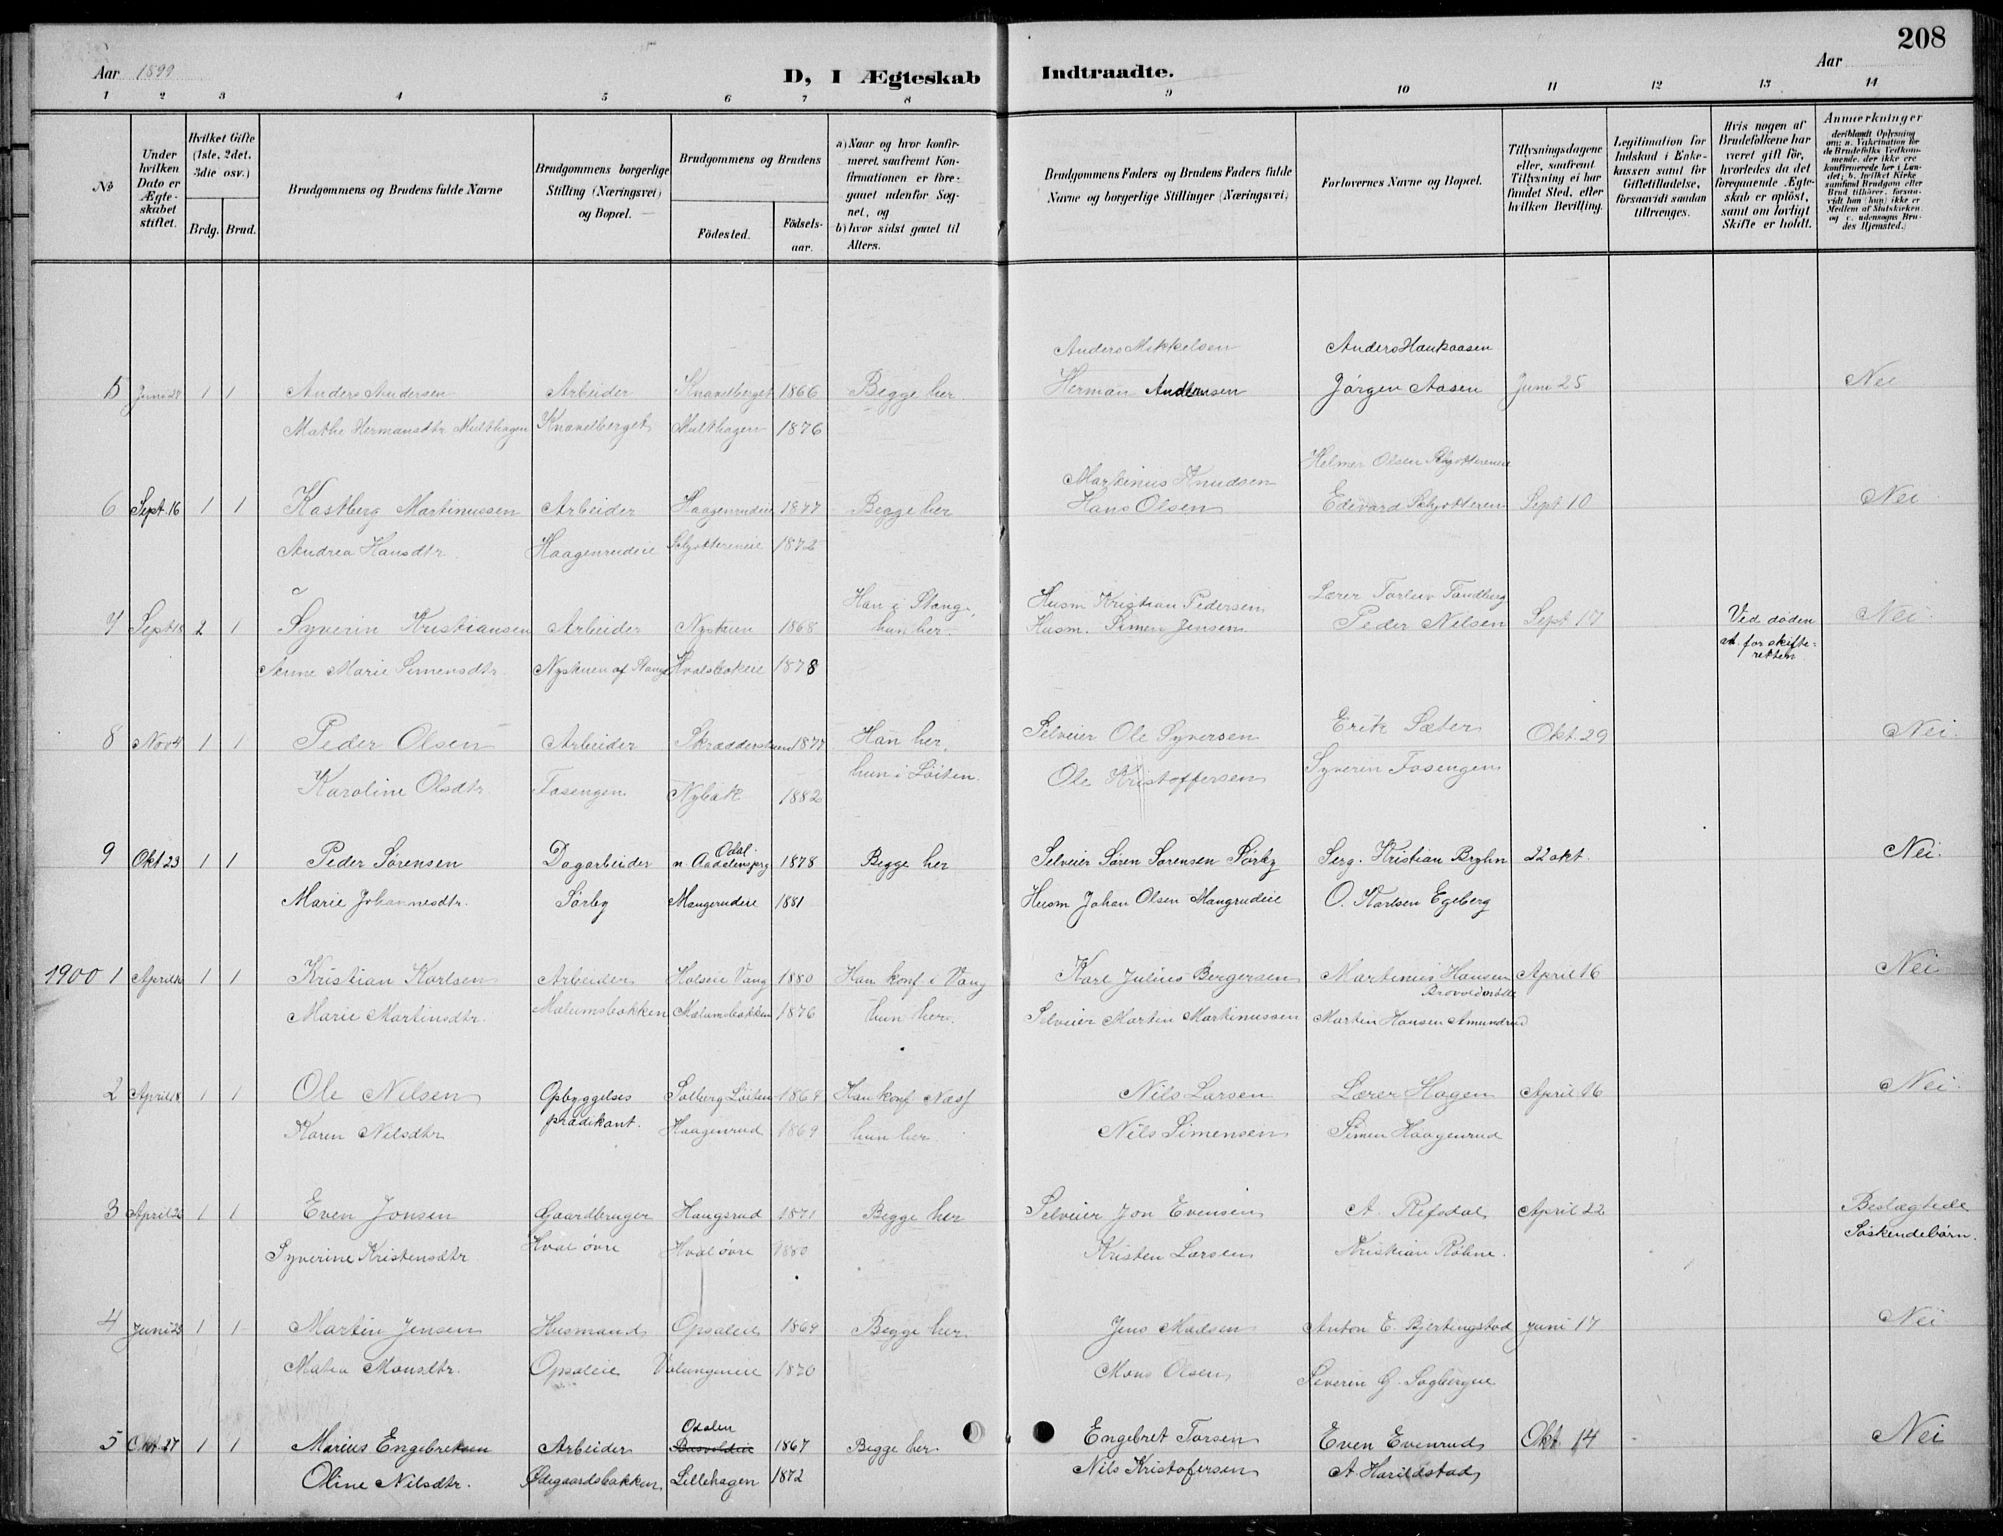 208
Aar 1899
D, I Ægteskab Indtraadte.
Aar
1 2 3 4 5 6 7 8 9 10 11 12 13 14
No
Under hvilken Dato er Ægteskabet stiftet.
Hvilket Gifte (1ste, 2det, 3die osv.)
Brdg. Brud.
Brudgommens og Brudens fulde Navne
Brudgommens borgerlige Stilling (Næringsvei) og Bopæl.
Brudgommens og Brudens
Födested.
Födsels-aar.
a) Naar og hvor konfirmeret, saafremt Konfirmationen er foregaaet udenfor Sognet, og
b) hvor sidst gaaet til Alters.
Brudgommens Faders og Brudens Faders fulde Navne og borgerlige Stillinger (Næringsvei)
Forlovernes Navne og Bopæl.
Tillysningsdagene eller, saafremt Tillysning ei har fundet Sted, efter hvilken Bevilling.
Legitimation for Indskud i Enkekassen samt for Giftetilladelse, forsaavidt saadan tiltrænges.
Hvis nogen af Brudefolkene har været gift för, hvorledes da det foregaaende Ægteskab er oplöst, samt om lovligt Skifte er holdt.
Anmærkninger
deriblandt Oplysning om: a. Vakcination for de Brudefolks Vedkommende, der ikke ere konfirmerede her i Landet; b. hvilket Kirkesamfund Brudgom eller Brud tilhörer, forsaavidt han (hun) ikke er Medlem af Statskirken og c. udensogns Brudes Hjemsted.)
Anders Mikkelsen Anders Haukaasen
5 Juni 28 1 1 Anders Andersen Arbeider Knavelberget 1866 Begge her. Herman Andersen Jørgen Aasen Juni 25 Nei
Mathe Hermansdtr Multhagen Knavelberget Multhagen 1876
Martinus Knudsen Helmer Olsen
6 Sept. 16 1 1 Kastberg Martinussen Arbeider Haagenrudeie 1877 Begge her Hans Olsen Edevard Sept 10 Nei
Andrea Hansdtr. Haagenrudeie 1872
Han i Stange, Husm Kristian Pedersen Lærer Torleiv Tandberg
7 Sept 18 2 1 Syverin Kristiansen Arbeider Nystuen 1868 hun her. Husm. Simen Jensen Peder Nilsen Sept 17 Ved døden Nei
anm. for skifteretten
Anne Marie Simensdtr. Nystuen af Stange Hvalsbakeie 1878
8 Nov 4 1 1 Peder Olsen Arbeider Skrædderstuen 1877 Han her, Selveier Ole Syversen Erik Sæter Okt 29 Nei.
Karoline Olsdtr Fosengen Nybak 1882 hun i Löiten. Ole Kristoffersen Syverin Fosengen
9 Okt 23 1 1 Peder Sørensen Dagarbeider n. Odal 1878 Begge her Selveier Søren Sørensen Sørby Serg. Kristian Bryhn 22 okt. Nei.
Marie Johannesdtr. Sørby Mangerudeie 1881 Husm Johan Olsen Mangrudeie O. Karlsen Egeberg
1900 1 April 16 1 1 Kristian Karlsen Arbeider Holseie Vang 1880 Han konf i Vang Karl Julius Bergersen Martinus Hansen April 16 Nei
Marie Martinsdtr. Mælumsbakken Mælumsbakken 1876 hun her. Selveier Martin Martinussen Martin Hansen Amundrud
2 April 18 1 1 Ole Nilsen Opbyggelses Solberg Löiten 1864 Han konf Næs Nils Larsen Lærer Hagen April 16 Nei.
Karen Nilsdtr prædikant. Haagenrud 1869 hun her. Nils Simensen Simen Haagenrud
3 April 26 1 1 Even Jonsen Gaardbruger Haugsrud 1871 Begge her Selveier Jon Evensen A. Refsdal April 22 Beslægtede
Syverine Kristensdtr Hval øvre Hval øvre 1880 Kristen Larsen Kristian Røhne. Søskendebørn.
4 Juni 23 1 1 Martin Jensen Husmand Opsaleie 1869 Begge her. Jens Madsen Anton E. Bjertingstad Juni 17 Nei
Matea Monsdtr. Opsaleie 1870 Mons Olsen Severin G. Sogbergeie
5 Okt 27 1 1 Marius Engebretsen Arbeider Odalen 1867 Begge her. Engebret Torsen Even Evenrud Okt 14 Nei
Oline Nilsdtr. Ødegaardsbakken Lillehagen 1872 Nils Kristofersen A. Harildstad